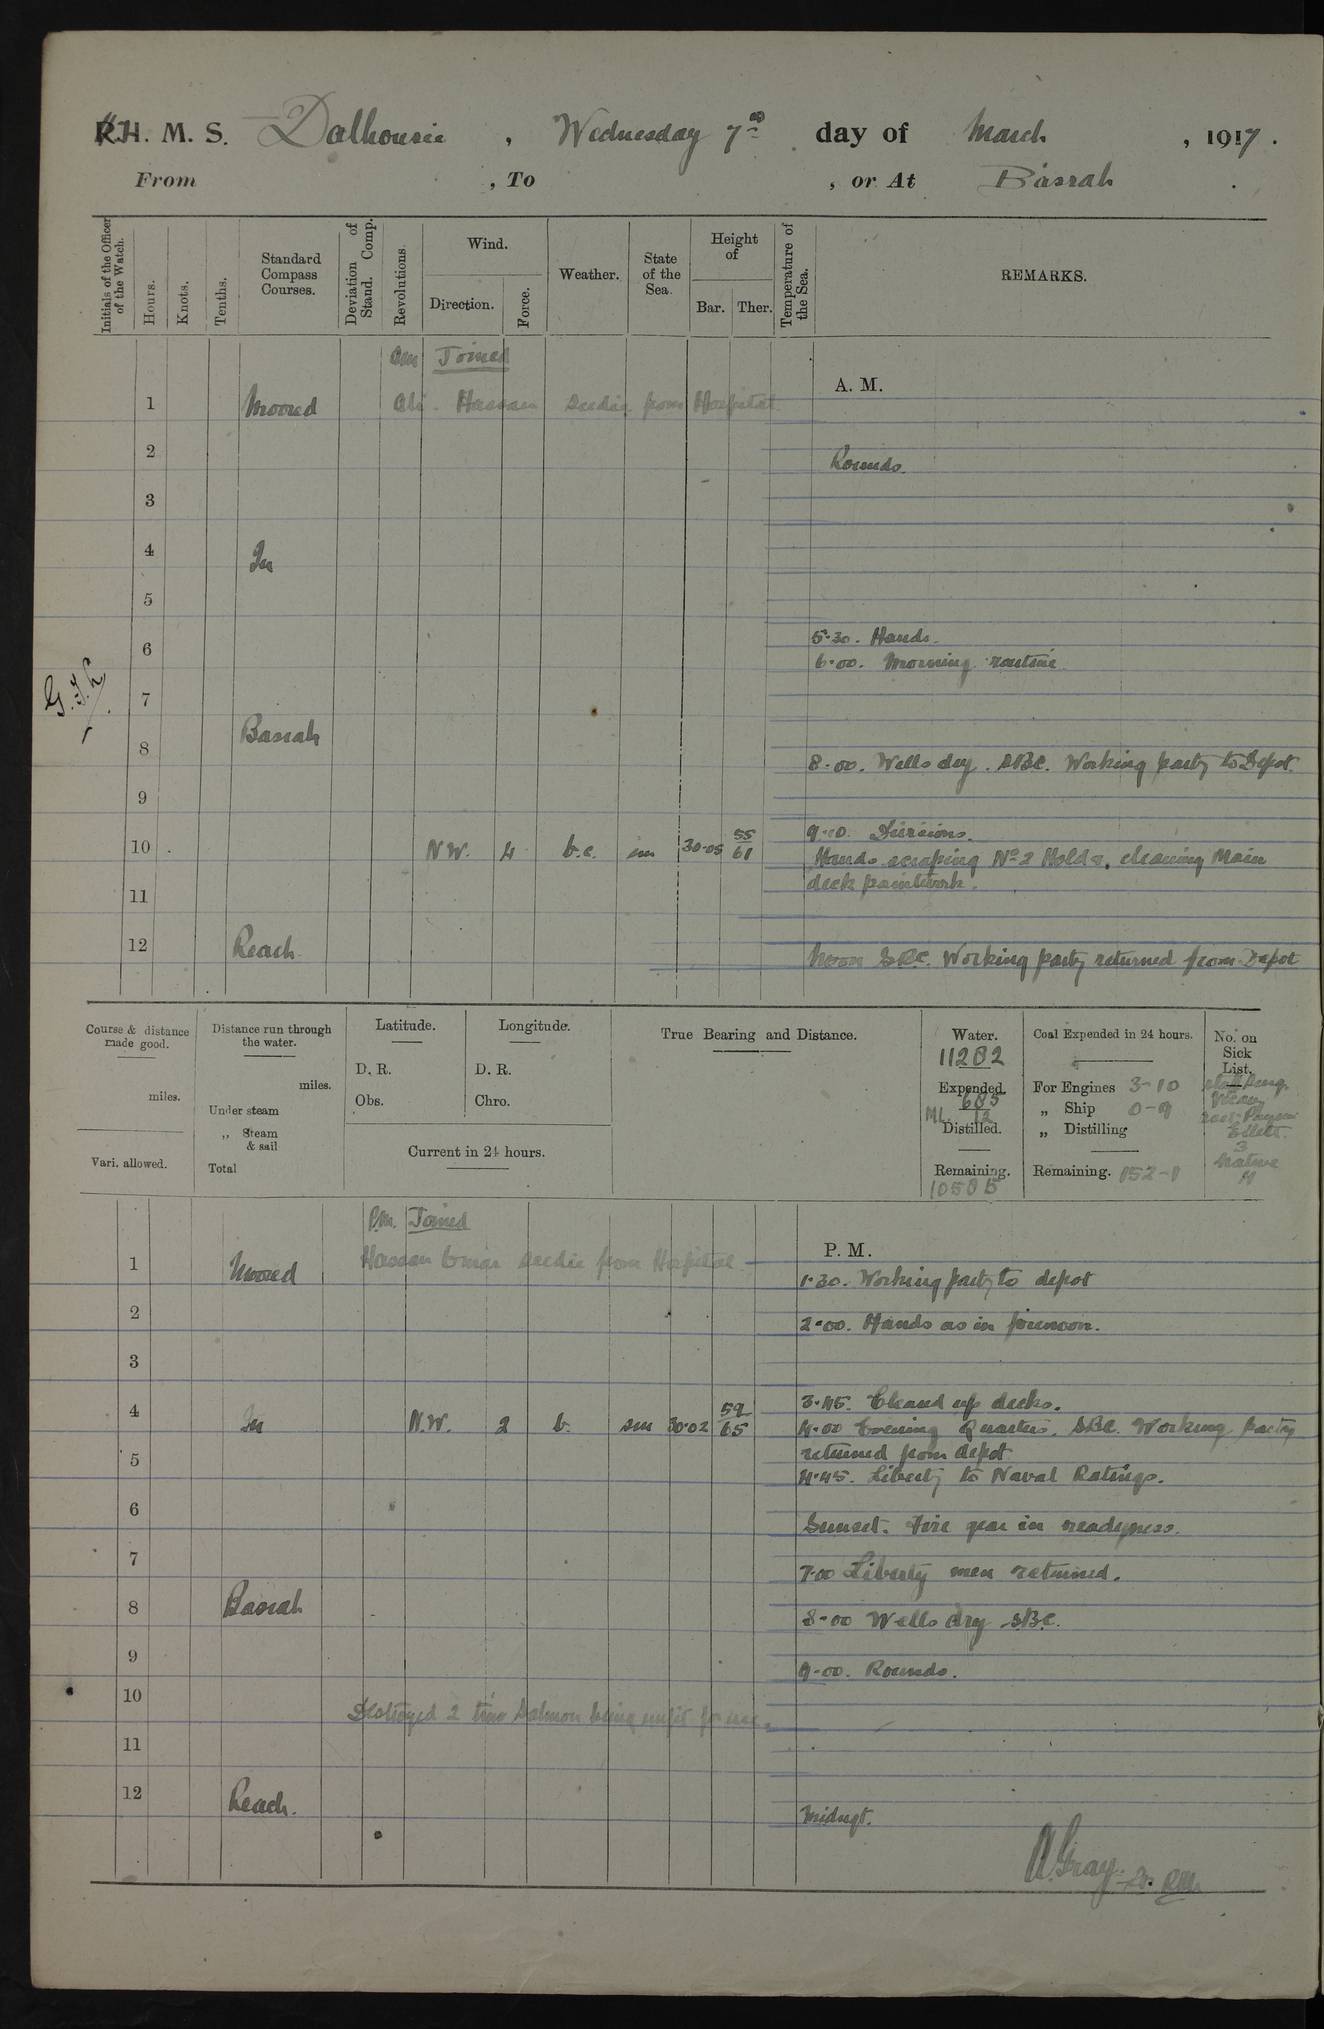 H. M. S. Dalhousie, Wednesday 7th day of March, 1917.
From , To , or At Basrah.
Initials of the Officer of the Watch.
Hours.
Knots.
Tenths.
Standard Compass Courses.
Deviation of Stand. Comp.
Revolutions.
Wind.
Direction.
Force.
Weather.
State of the Sea.
Height of
Bar.
Ther.
Temperature of the Sea.
REMARKS.
am Joined
A. M.
1 Moored Ali Hassan Seedie from Hospital
2 Rounds.
3
4 In
5
5.30. Hands.
6
6.00. Morning routine
7
Basrah
8
8.00. Wells dry. SBC. Working party to Depot.
9
9.10. Divisions.
10 N.W. 4 b.c. sm 30.05 55/61 Hands scraping No 2 Holds, cleaning Main
deck paintwork.
11
12 Reach
Noon SBC. Working party returned from Depot
Course & distance made good.
miles.
Vari. allowed.
Distance run through the water.
miles.
Under steam
„ Steam & sail
Total
Latitude.
D. R.
Obs.
Longitude.
D. R.
Chro.
Current in 24 hours.
True Bearing and Distance.
Water.
11202
Expended.
685
ML. 12
Distilled.
Remaining.
10505
Coal Expended in 24 hours.
For Engines 3-10
„ Ship 0-9
„ Distilling
Remaining. 152-1
No. on Sick List.
3
Native
4
P.M. Joined
P. M.
1 Moored Hassan Omar Seedie from Hospital
1.30. Working party to depot
2
2.00. Hands as in forenoon.
3
3.45. Cleared up decks.
4 In N.W. 2 b. sm 30.02 59/65 4.00 Evening Quarters. SBC. Working party
returned from depot
5
4.45. Liberty to Naval Ratings.
6
Sunset. Fire gear in readyness.
7
7.00 Liberty men returned.
8 Basrah
8.00 Wells dry SBC.
9
9.00. Rounds.
10
Destroyed 2 tins Salmon being unfit for use.
11
12 Reach.
Midngt.
A. Gray